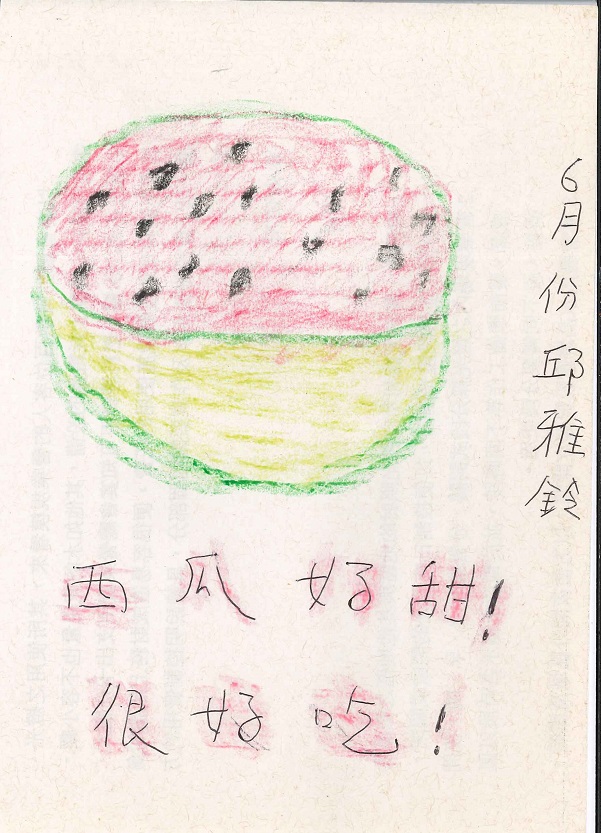 6月份邱雅鈴
西瓜好甜!
很好吃!